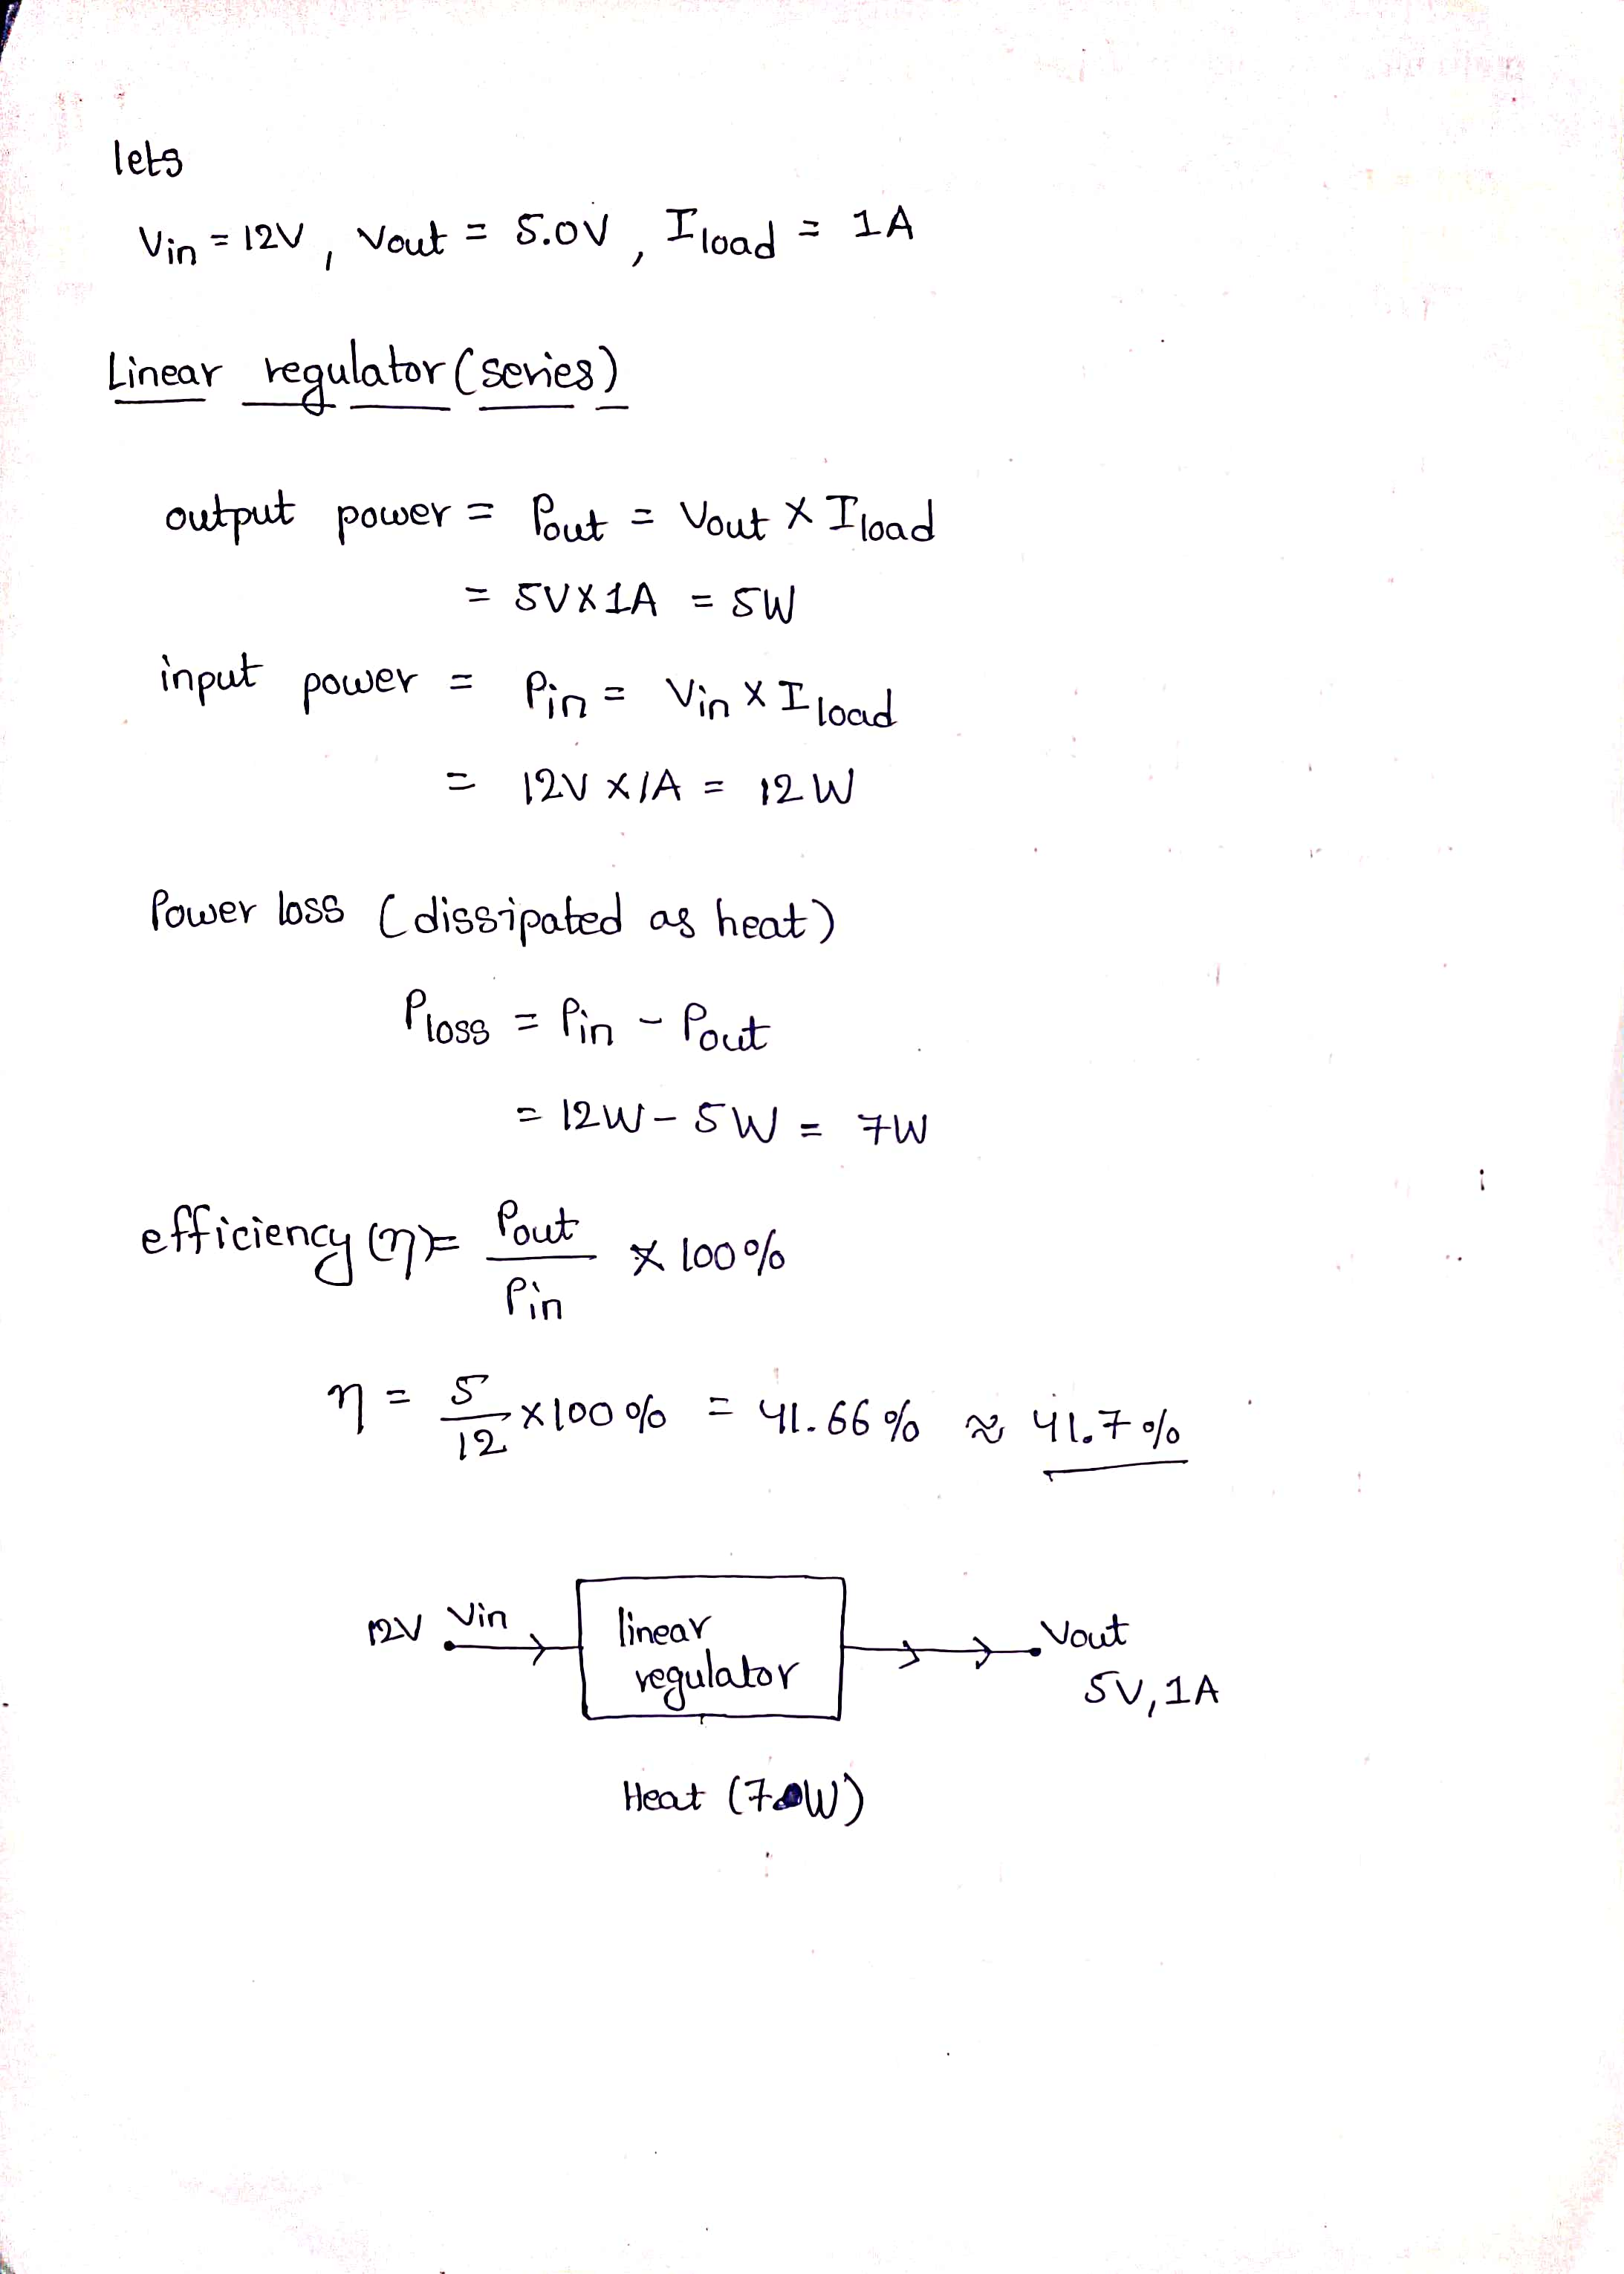 lets
Vin = 12V, Vout = 5.0V, Iload = 1A
Linear regulator (series)
output power = Pout = Vout X Iload
= 5VX1A = 5W
input power = Pin = Vin X Iload
= 12V X1A = 12W
Power loss (dissipated as heat)
Ploss = Pin - Pout
= 12W - 5W = 7W
efficiency (η) = Pout / Pin X 100%
η = 5/12 X100% = 41.66% ≈ 41.7%
12V Vin
linear
regulator
Vout
5V, 1A
Heat (7W)